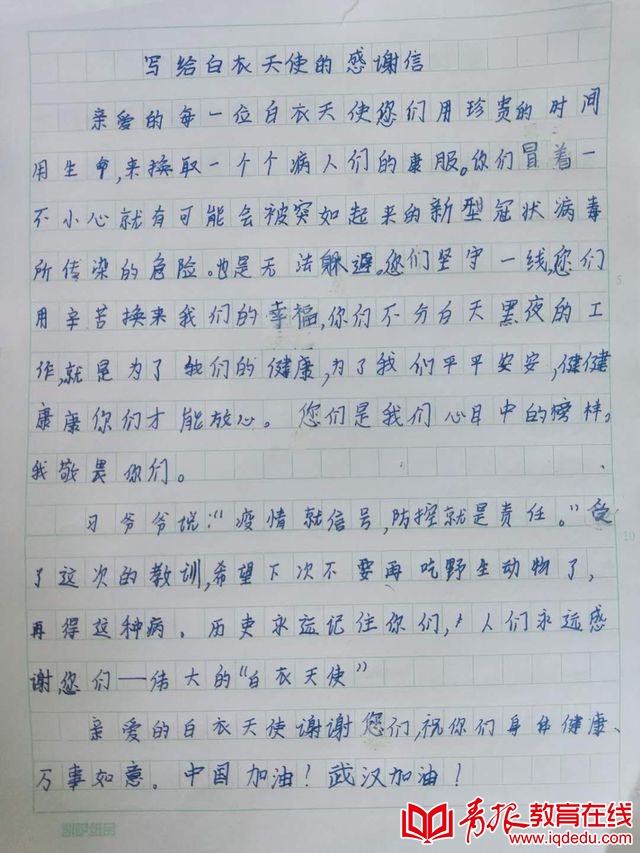 写给白衣天使的感谢信
亲爱的每一位白衣天使您们用珍贵的时间
用生命,来换取一个个病人们的康服。你们冒着一
不小心就有可能会被突如起来的新型冠状病毒
所传染的危险。也是无法躲避。您们坚守一线,您们
用辛苦换来我们的幸福,你们不分白天黑夜的工
作,就是为了他们的健康,为了我们平平安安,健健
康康你们才能放心。您们是我们心目中的榜样。
我敬畏你们。
习爷爷说:“疫情就信号,防控就是责任。”受
了这次的教训,希望下次不要再吃野生动物了,
再得这种病。历史永远记住你们,人们永远感
谢,您们——伟大的“白衣天使”
亲爱的白衣天使谢谢您们,祝你们身体健康、
万事如意。中国加油!武汉加油!
5
10
青报教育在线
www.iqdedu.com